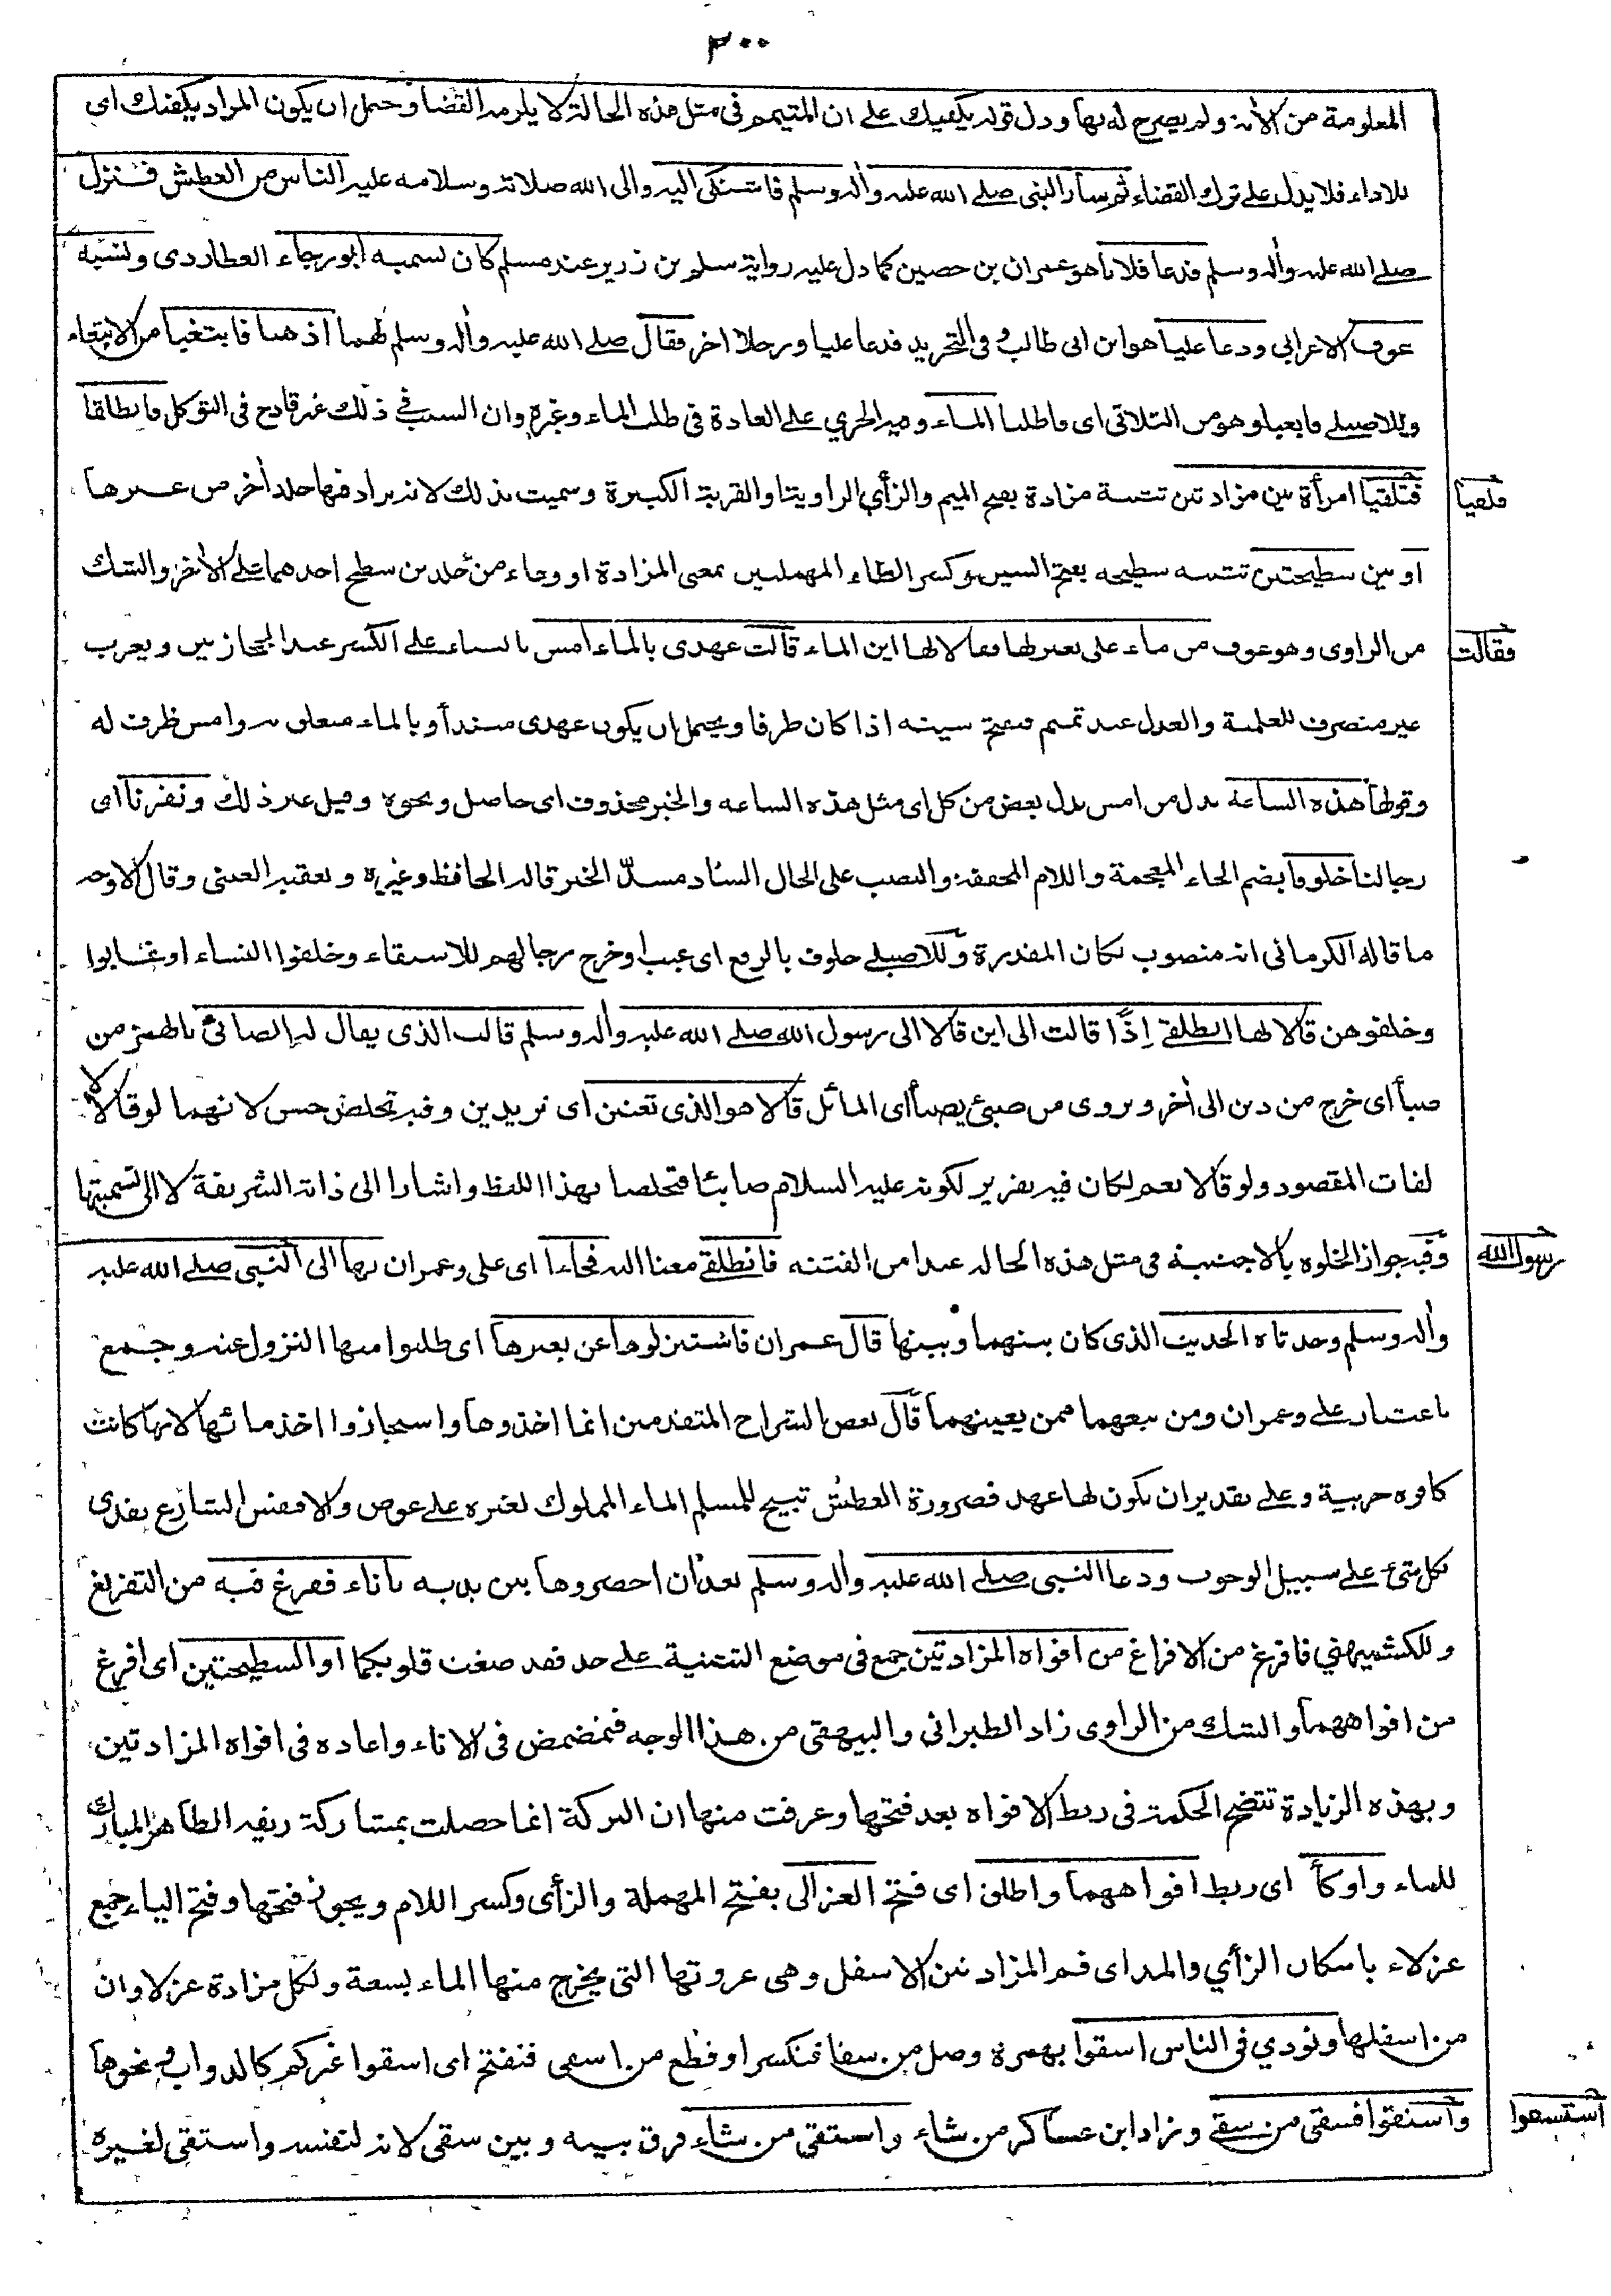 ٣٠٠
المعلومة من الآية ولم يصرح له بها ودل قوله يكفيك على ان المتيمم فى مثل هذه الحالة لا يلزمه القضا وحتمل ان يكون المراد يكفيك اى
للاداء فلا يدل على ترك القضاء ثم سار النبى صلى الله عليه وآله وسلم فاشتكى اليه والى الله صلاته وسلامه عليه الناس من العطش فنزل
صلى الله عليه وآله وسلم فدعا فلانا هو عمران بن حصين كما دل عليه رواية سلم بن زرير عند مسلم كان يسميه ابو رجاء العطاردى ونسيه
عوف الاعرابى ودعا عليا هو ابن ابى طالب وفى التجريد فدعا عليا ورجلا اخر فقال صلى الله عليه وآله وسلم لهما اذهبا فابتغيا من الابتغاء
وللاصيلى فابغيا وهو من الثلاثى اى فاطلبا الماء وفيه الجري على العادة فى طلب الماء وغيره وان السبب فى ذلك غير قادح فى التوكل فانطلقا
فتلقيا امرأة بين مزادتين تثنية مزادة بفتح الميم والزأي الراوية او القربة الكبيرة وسميت بذلك لانه يزاد فيها جلد آخر من غيرها
فلقيا
او بين سطيحتين تثنية سطيحه بفتح السين وكسر الطاء المهملتين بمعنى المزادة او وعاء من جلدين سطح احدهما على الآخر والشك
من الراوى وهو عوف من ماء على بعير لها فقالا لها اين الماء قالت عهدى بالماء امس بالبناء على الكسر عند الحجازيين ويعرب
فقالت
غير منصرف للعلمية والعدل عند تميم فتفتح سينه اذا كان ظرفا ويحتمل ان يكون عهدى مبتدأ وبالماء متعلق به وامس ظرف له
وقولها هذه الساعة بدل من امس بدل بعض من كل اى مثل هذه الساعه والخبر محذوف اى حاصل ونحوه وقيل غير ذلك ونفرنا اى
رجالنا خلوفا بضم الخاء المعجمة واللام المخففة والنصب على الحال الساد مسدّ الخبر قاله الحافظ وغيره وتعقبه العينى وقال الاوجه
ما قاله الكرمانى انه منصوب بكان المقدرة وللاصيلى خلوف بالرفع اى غيب او خرج رجالهم للاستقاء وخلفوا النساء او غابوا
وخلفوهن قالا لها انطلقى اِذًا قالت الى اين قالا الى رسول الله صلى الله عليه وآله وسلم قالت الذى يقال له الصابئ بالهمز من
صبأ اى خرج من دين الى آخر ويروى من صبئ يصبأ اى المائل قالا هو الذى تعنين اى تريدين وفيه تخلص حسن لانهما لو قالا لا
لفات المقصود ولو قالا نعم لكان فيه تقرير لكونه عليه السلام صابئا فتخلصا بهذا اللفظ واشارا الى ذاته الشريفة لا الى تسميتها
وفيه جواز الخلوه بالاجنبية فى مثل هذه الحاله عند امن الفتنه فانطلقى معنا اليه فجاءا اى على وعمران بها الى النبى صلى الله عليه
رسول الله
وآله وسلم وحدثاه الحديث الذى كان بينهما وبينها قال عمران فاستنزلوها عن بعيرها اى طلبوا منها النزول عنه وجمع
باعتبار على وعمران ومن تبعهما ممن يعينهما قال بعض الشراح المتقدمين انما اخذوها واستجازوا اخذ مائها لانها كانت
كافره حربية وعلى تقدير ان يكون لها عهد فضرورة العطش تبيح للمسلم الماء المملوك لغيره على عوض والا فنفس الشارع يفدى
بكل شئ على سبيل الوجوب ودعا النبى صلى الله عليه وآله وسلم بعد ان احضروها بين يديه باناء ففرغ فيه من التفريغ
وللكشميهني فافرغ من الافراغ من افواه المزادتين جمع فى موضع التثنية على حد فقد صغت قلوبكما او السطيحتين اى افرغ
من افواههما والشك من الراوى زاد الطبرانى والبيهقى من هذا الوجه فتمضمض فى الاناء واعاده فى افواه المزادتين
وبهذه الزيادة تتضح الحكمة فى ربط الافواه بعد فتحها وعرفت منها ان البركة انما حصلت بمشاركة ريقه الطاهر المبارك
للماء واوكأ اى ربط افواههما واطلق اى فتح العزالى بفتح المهملة والزأى وكسر اللام ويجوز فتحها وفتح الياء جمع
عزلاء باسكان الزأي والمد اى فم المزادتين الاسفل وهى عروتها التى يخرج منها الماء بسعة ولكل مزادة عزلاوان
من اسفلها ونودي فى الناس اسقوا بهمزة وصل من سقا فتكسر او قطع من اسقى فتفتح اى اسقوا غيركم كالدواب ونحوها
واستقوا فسقى من سقى وزاد ابن عساكر من شاء واستقى من شاء فرق بينه وبين سقى لانه لنفسه واستقى لغيره